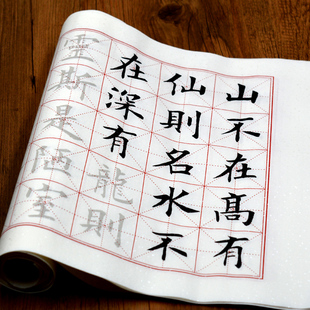 山不在髙有
仙則名水不
在深有龍則
靈斯是陋室